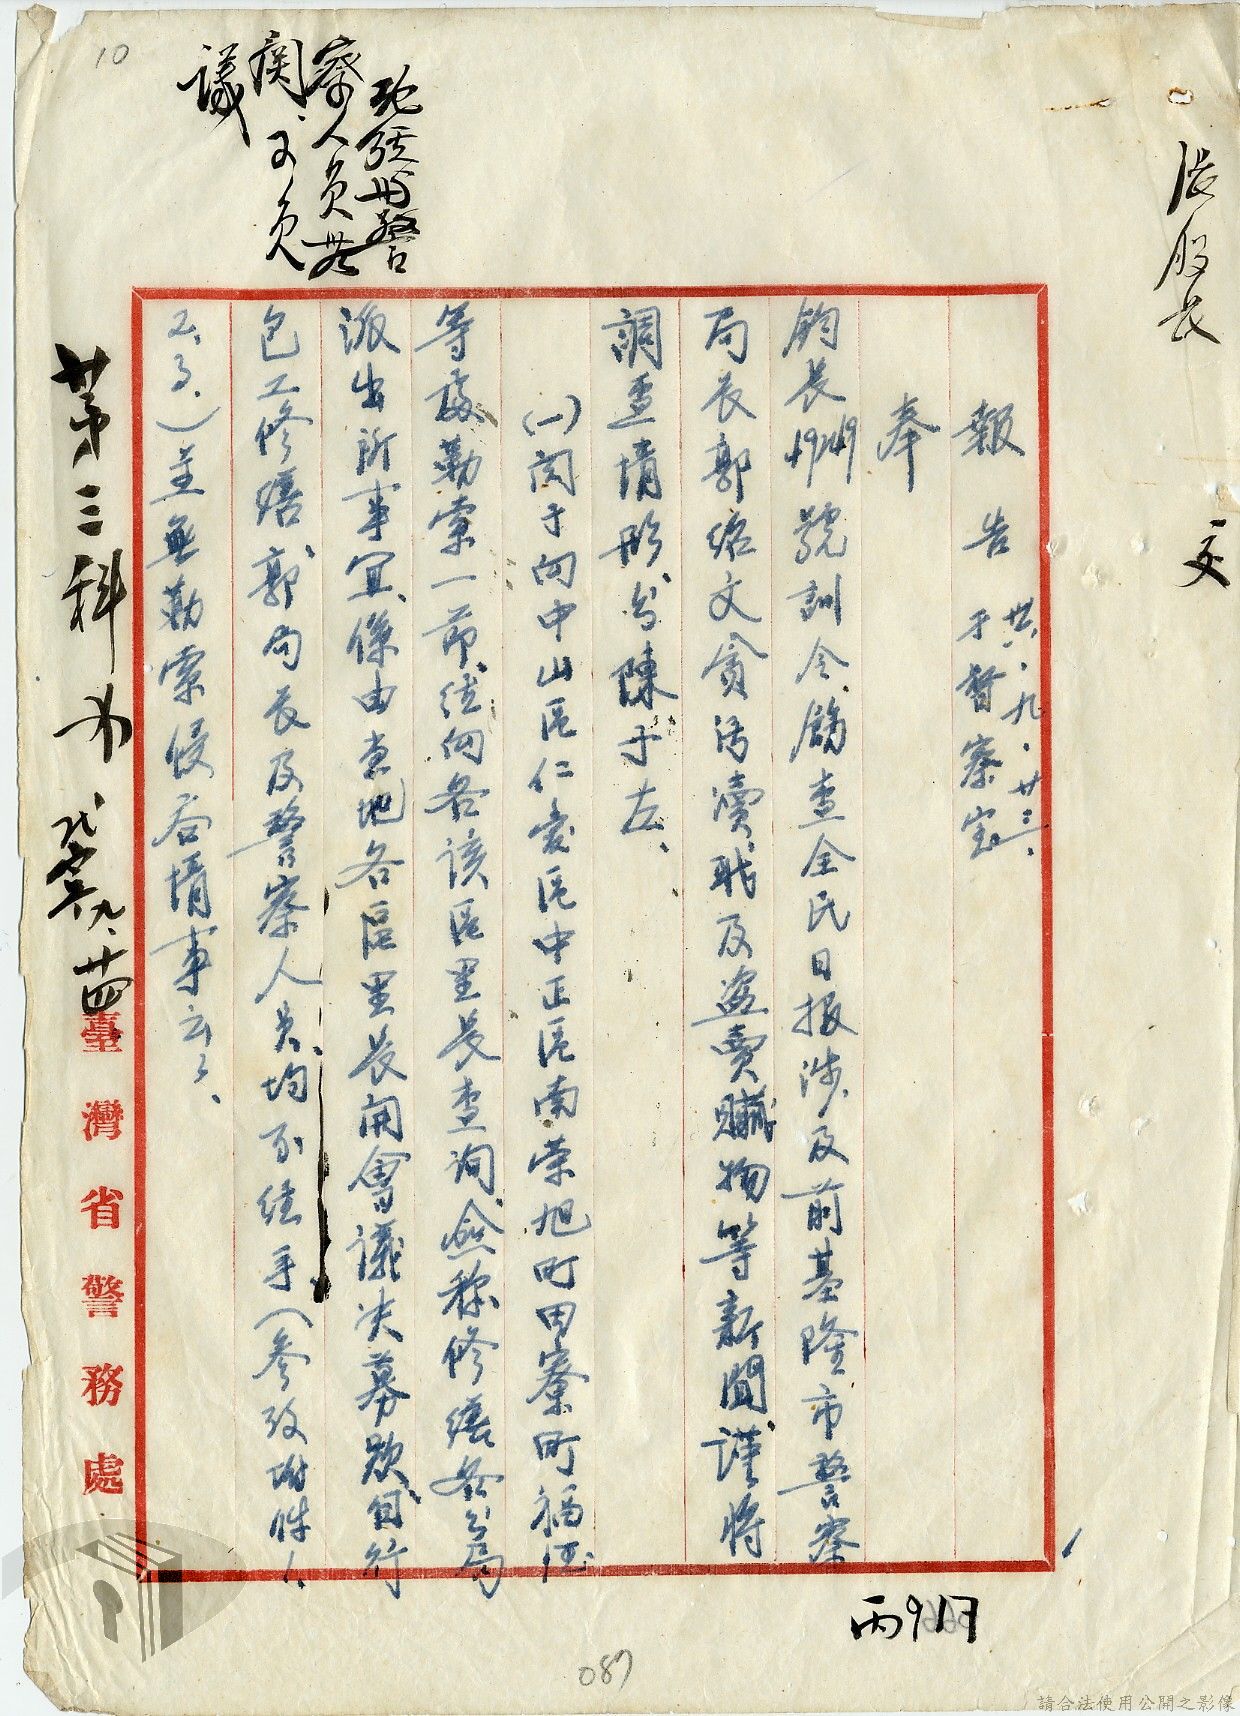 張股長
文
報告 卅六、九、廿三、
于督察室
奉
鈞長49249號訓令飭查全民日報涉及前基隆市警察
局長郭紹文貪污瀆職及盜賣贓物等新聞謹將
調查情形分陳于左、
(一)關于向中山區仁愛區中正區南榮旭町田寮町福德
等處勒索一節、經向各該區里長查詢、僉稱修繕各分局
派出所事宜、係由當地各區里長開會議決募款自行
包工修繕、郭局長及警察人員均不經手(參攷附件1、
2、3、)並無勒索侵吞情事云々、
察人員共
議
第三科
九、廿四
臺灣省警務處
10
087
請合法使用公開之影像